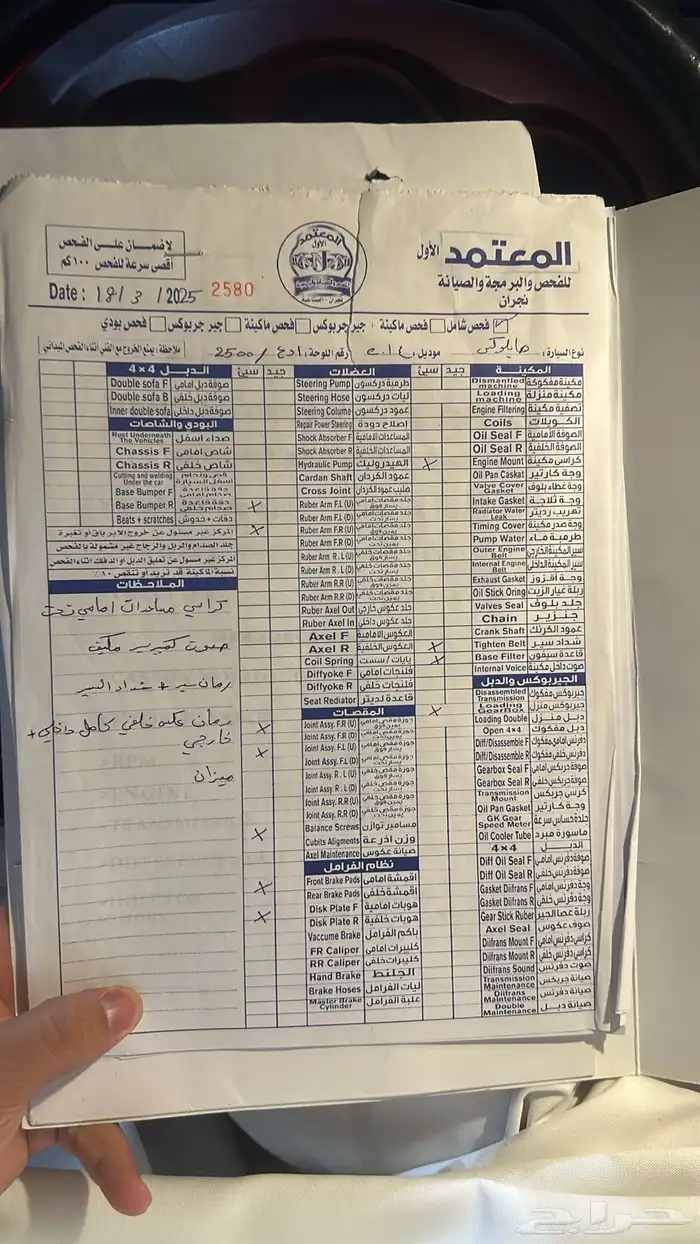 المعتمد الأول
للفحص والبرمجة والصيانة
نجران
لاضمان على الفحص
أقصى سرعة للفحص ١٠٠ كم
Date: 18/3/2025 2580
فحص شامل
فحص ماكينة + جير جربوكس
فحص ماكينة
جير جربوكس
فحص بودي
نوع السيارة:
موديل
رقم اللوحة: 2500
ملاحظة: يمنع الخروج مع الفني أثناء الفحص الميداني
المكينة
جيد
سيئ
Dismantled machine مكينة مفكوكة
Loading machine مكينة منزلة
Engine Filtering تصفية مكينة
Coils الكويلات
Oil Seal F الصوفة الامامية
Oil Seal R الصوفة الخلفية
Engine Mount كراسي مكينة
Oil Pan Caskat وجة كارتير
Valve Cover Gasket وجة غطاء بلوف
Intake Gasket وجة ثلاجة
Radiator Water Leak تهريب رديتر
Timing Cover وجة صدر مكينة
Pump Water طرمبة ماء
Outer Engine Belt سير المكينة الخارجي
Internal Engine Belt سير المكينة الداخلي
Exhaust Gasket وجة اقزوز
Oil Stick Oring ربلة عيار الزيت
Valves Seal جلد بلوف
Chain جنزير
Crank Shaft عمود الكرنك
Tighten Belt شداد سير
Base Filter قاعدة سيفون
Internal Voice صوت داخل مكينة
الجيربوكس والدبل
Disassembled Transmission جيربوكس مفكوك
Loading GearBox جيربوكس منزل
Loading Double دبل منزل
Open 4x4 دبل مفكوك
Diff/Disassemble F دفرنس امامي مفكوك
Diff/Disassemble R دفرنس خلفي مفكوك
Gearbox Seal F صوفة جربكس امامي
Gearbox Seal R صوفة جربكس خلفي
Transmission Mount كرسي جربكس
Oil Pan Gasket وجة كارتير
GK Gear Speed Meter جلدة حساس سرعة
Oil Cooler Tube ماسورة مبرد
4×4 الدبل
Diff Oil Seal F صوفة دفرنس امامي
Diff Oil Seal R صوفة دفرنس خلفي
Gasket Diifrans F وجة دفرنس امامي
Gasket Diifrans R وجة دفرنس خلفي
Gear Stick Ruber ربلة عصا الجير
Axel Seal صوف عكوس
Diifrans Mount F كراسي دفرنس امامي
Diifrans Mount R كراسي دفرنس خلفي
Diifrans Sound صوت دفرنس
Transmission Maintenance صيانة جربكس
Diifrans Maintenance صيانة دفرنس
Double Maintenance صيانة دبل
العضلات
جيد
سيئ
Steering Pump طرمبة دركسون
Steering Hose ليات دركسون
Steering Colume عمود دركسون
Repair Power Steering إصلاح دودة
Shock Absorber F المساعدات الامامية
Shock Absorber R المساعدات الخلفية
Hydraulic Pump الهيدروليك
Cardan Shaft عمود الكردان
Cross Joint صليب عمود الكردان
Ruber Arm F.L (U)
Ruber Arm F.L (D)
Ruber Arm F.R (U)
Ruber Arm F.R (D)
Ruber Arm R . L (U)
Ruber Arm R . L (D)
Ruber Arm R.R (U)
Ruber Arm R.R (D)
Ruber Axel Out جلد عكوس خارجي
Ruber Axel In جلد عكوس داخلي
Axel F العكوس الامامية
Axel R العكوس الخلفية
Coil Spring يايات / سست
Diffyoke F فلنجات امامي
Diffyoke R فلنجات خلفي
Seat Radiator قاعدة لديتر
المقصات
Joint Assy. F.R (U)
Joint Assy. F.R (D)
Joint Assy. F.L (U)
Joint Assy. F.L (D)
Joint Assy. R . L (U)
Joint Assy. R . L (D)
Joint Assy. R.R (U)
Joint Assy. R.R (D)
Balance Screws مسامير توازن
Cubits Aligments وزن اذرعة
Axel Maintenance صيانة عكوس
نظام الفرامل
Front Brake Pads اقمشة امامي
Rear Brake Pads اقمشة خلفي
Disk Plate F هوبات امامية
Disk Plate R هوبات خلفية
Vaccume Brake باكم الفرامل
FR Caliper كليبرات امامي
RR Caliper كليبرات خلفي
Hand Brake الجلنط
Brake Hoses ليات الفرامل
Master Brake Cylinder علبة الفرامل
الدبل 4×4
جيد
سيئ
Double sofa F صوفة دبل امامي
Double sofa B صوفة دبل خلفي
Inner double sofa صوفة دبل داخلي
البودي والشاصات
Rust Underneath The Vehicles صداء اسفل
Chassis F شاص امامي
Chassis R شاص خلفي
Cutting and welding Under the car قص ولحام اسفل السيارة
Base Bumper F دقة قاعدة صدام امامي
Base Bumper R دقة قاعدة صدام خلفي
Beats + scratches دقات + خدوش
المركز غير مسئول عن خروج الابرباق او تغيرة
جلد الصدام والربل والزجاج غير مشمولة بالفحص
المركز غير مسئول عن تعليق الدبل او الدفك اثناء الفحص
نسبة المكينة قد تزيد او تنقص ١٠٪
الملاحظات
كراسي مساعدات امامي تحت
صوت كمبرسر مكيف
رمان سير + شداد السير
رمان عكس خلفي كامل داخلي +
خارجي
ميزان
حراج